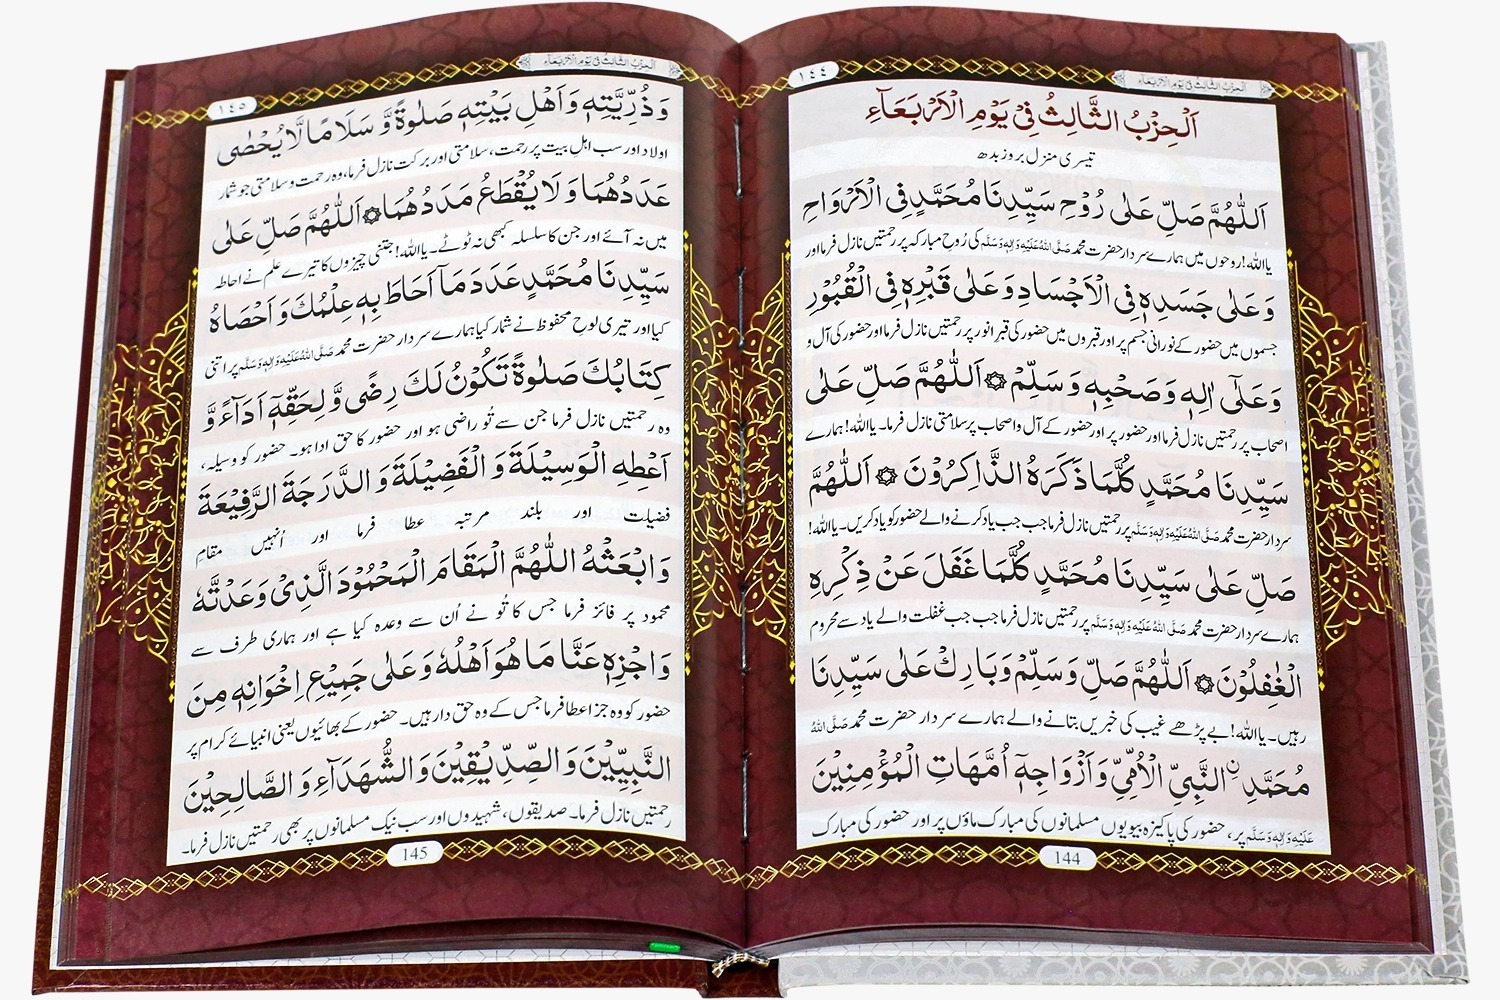 اَلْحِزْبُ الثَّالِثُ فِیْ یَوْمِ الْاَرْبَعَآءِ
١٤٤
اَلْحِزْبُ الثَّالِثُ فِیْ یَوْمِ الْاَرْبَعَآءِ
تیسری منزل بروز بدھ
اَللّٰهُمَّ صَلِّ عَلٰی رُوْحِ سَیِّدِنَا مُحَمَّدٍ فِی الْاَرْوَاحِ
یااللہ! روحوں میں ہمارے سردار حضرت محمد صَلَّی اللّٰهُ عَلَیْهِ وَاٰلِهٖ وَسَلَّم کی رُوحِ مبارکہ پر رحمتیں نازل فرما اور
وَ عَلٰی جَسَدِهٖ فِی الْاَجْسَادِ وَ عَلٰی قَبْرِهٖ فِی الْقُبُوْرِ
جسموں میں حضور کے نورانی جسم پر اور قبروں میں حضور کی قبرِ انور پر رحمتیں نازل فرما اور حضور کی آل و
وَ عَلٰٓی اٰلِهٖ وَ صَحْبِهٖ وَ سَلِّمْ ۞ اَللّٰهُمَّ صَلِّ عَلٰی
اصحاب پر رحمتیں نازل فرما اور حضور پر اور حضور کے آل و اصحاب پر سلامتی نازل فرما۔ یااللہ! ہمارے
سَیِّدِنَا مُحَمَّدٍ كُلَّمَا ذَكَرَهُ الذَّاكِرُوْنَ ۞ اَللّٰهُمَّ
سردار حضرت محمد صَلَّی اللّٰهُ عَلَیْهِ وَاٰلِهٖ وَسَلَّم پر رحمتیں نازل فرما جب جب یاد کرنے والے حضور کو یاد کریں۔ یااللہ!
صَلِّ عَلٰی سَیِّدِنَا مُحَمَّدٍ كُلَّمَا غَفَلَ عَنْ ذِكْرِهِ
ہمارے سردار حضرت محمد صَلَّی اللّٰهُ عَلَیْهِ وَاٰلِهٖ وَسَلَّم پر رحمتیں نازل فرما جب جب غفلت والے یاد سے محروم
الْغٰفِلُوْنَ ۞ اَللّٰهُمَّ صَلِّ وَسَلِّمْ وَبَارِكْ عَلٰی سَیِّدِنَا
رہیں۔ یااللہ! بے پڑھے غیب کی خبریں بتانے والے ہمارے سردار حضرت محمد صَلَّی اللّٰهُ
مُحَمَّدِ نِ النَّبِیِّ الْاُمِّیِّ وَ اَزْوَاجِهٖٓ اُمَّهَاتِ الْمُؤْمِنِیْنَ
عَلَیْهِ وَاٰلِهٖ وَسَلَّم پر، حضور کی پاکیزہ بیویوں مسلمانوں کی مبارک ماؤں پر اور حضور کی مبارک
144
اَلْحِزْبُ الثَّالِثُ فِیْ یَوْمِ الْاَرْبَعَآءِ
١٤٥
وَ ذُرِّیَّتِهٖ وَ اَهْلِ بَیْتِهٖ صَلٰوةً وَّ سَلَامًا لَّا یُحْصٰی
اولاد اور سب اہلِ بیت پر رحمت، سلامتی اور برکت نازل فرما، وہ رحمت و سلامتی جو شمار
عَدَدُهُمَا وَ لَا یُقْطَعُ مَدَدُهُمَا ۞ اَللّٰهُمَّ صَلِّ عَلٰی
میں نہ آئے اور جن کا سلسلہ کبھی نہ ٹوٹے۔ یااللہ! جتنی چیزوں کا تیرے علم نے احاطہ
سَیِّدِنَا مُحَمَّدٍ عَدَدَ مَآ اَحَاطَ بِهٖ عِلْمُكَ وَ اَحْصَاهُ
کیا اور تیری لوحِ محفوظ نے شمار کیا ہمارے سردار حضرت محمد صَلَّی اللّٰهُ عَلَیْهِ وَاٰلِهٖ وَسَلَّم پر اتنی
كِتَابُكَ صَلٰوةً تَكُوْنُ لَكَ رِضًی وَّ لِحَقِّهٖٓ اَدَآءً وَّ
وہ رحمتیں نازل فرما جن سے تُو راضی ہو اور حضور کا حق ادا ہو۔ حضور کو وسیلہ،
اَعْطِهِ الْوَسِیْلَةَ وَ الْفَضِیْلَةَ وَ الدَّرَجَةَ الرَّفِیْعَةَ
فضیلت اور بلند مرتبہ عطا فرما اور اُنہیں مقامِ
وَ ابْعَثْهُ اللّٰهُمَّ الْمَقَامَ الْمَحْمُوْدَ الَّذِیْ وَعَدْتَّهٗ
محمود پر فائز فرما جس کا تُو نے اُن سے وعدہ کیا ہے اور ہماری طرف سے
وَ اجْزِهٖ عَنَّا مَا هُوَ اَهْلُهٗ وَ عَلٰی جَمِیْعِ اِخْوَانِهٖ مِنَ
حضور کو وہ جزا عطا فرما جس کے وہ حق دار ہیں۔ حضور کے بھائیوں یعنی انبیائے کرام پر
النَّبِیِّیْنَ وَ الصِّدِّیْقِیْنَ وَ الشُّهَدَآءِ وَ الصَّالِحِیْنَ
رحمتیں نازل فرما۔ صدیقوں، شہیدوں اور سب نیک مسلمانوں پر بھی رحمتیں نازل فرما۔
145